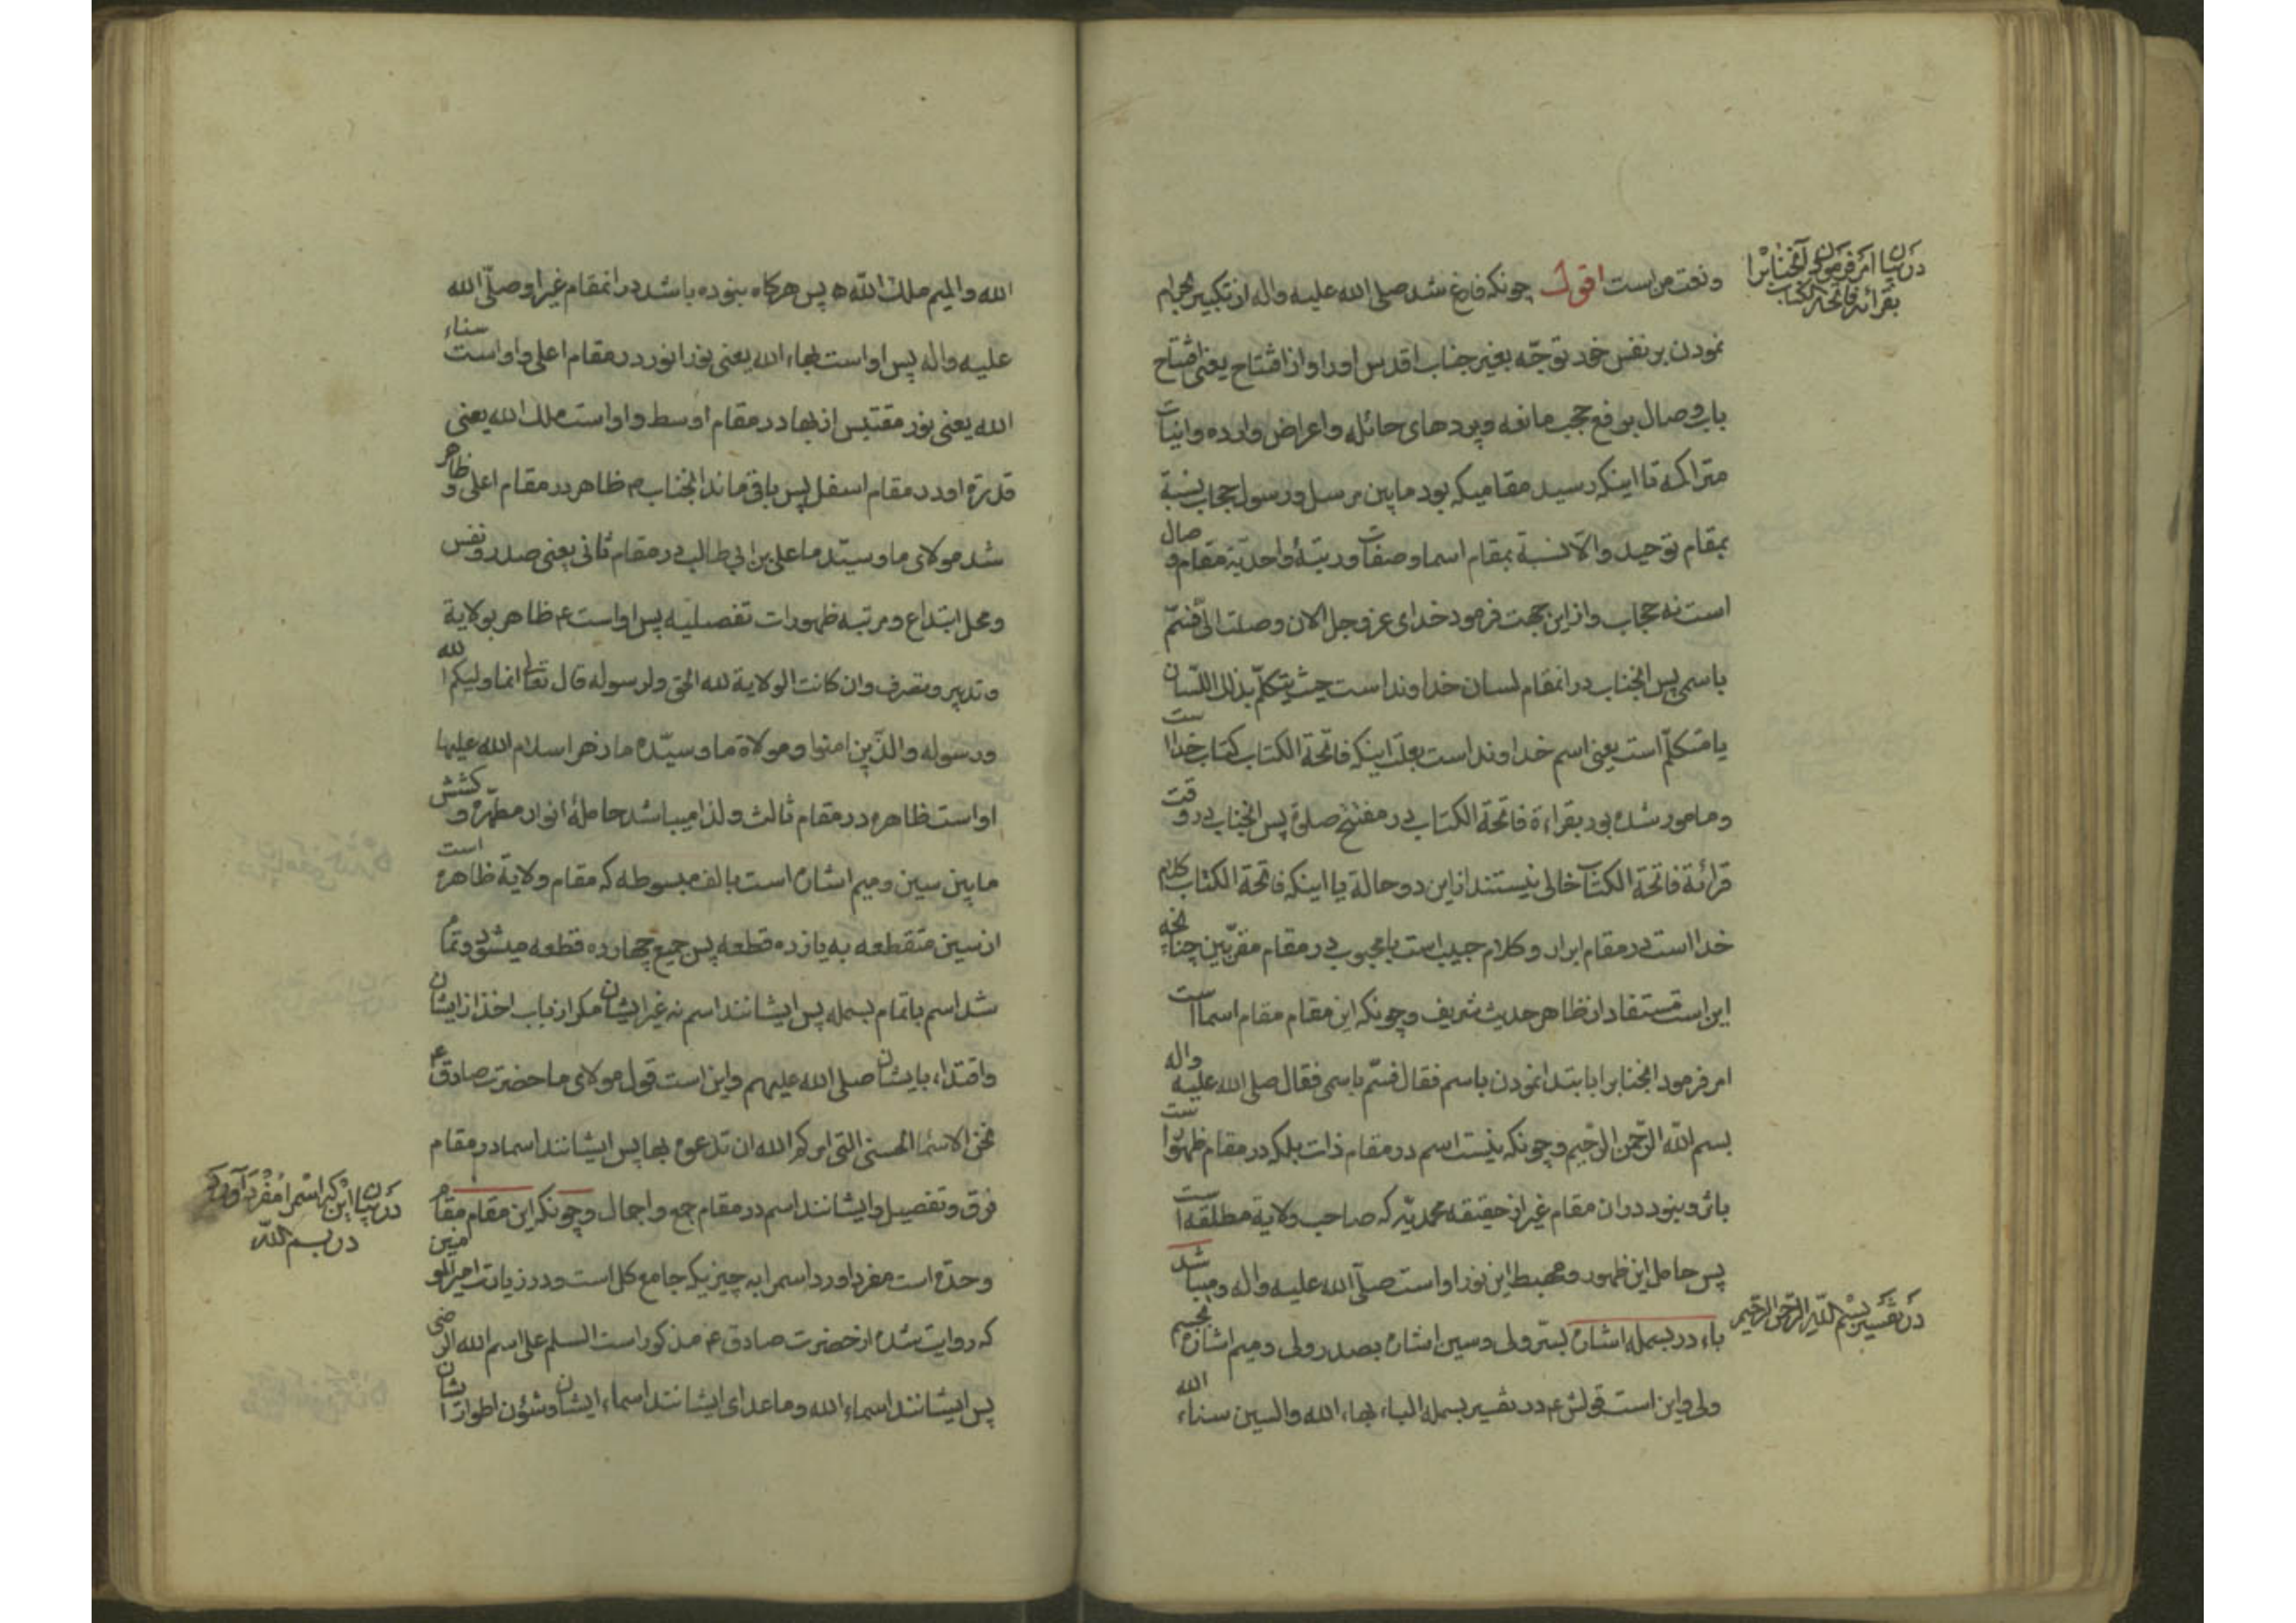 در بیان امر فرمودن آنجناب را
بقرائه فاتحة الکتاب
و نعت من است اقول چونکه فارغ شد صلی الله علیه واله از تکبیر
نمودن بر نفس خود توجّه بغیر جناب اقدس او را و از افتتاح یعنی افتتاح
باب وصال برفع حجب مانعه و پردهای حائله و اعراض وارده و انیات
متراکمه تا اینکه رسید مقامیکه بود مابین مرسل و رسول حجاب نسبة
بمقام توحید والّا نسبة بمقام اسما و صفات و رتبهٔ واحدیّة مقام وصال
است نه حجاب و از این جهت فرمود خدای عز و جل الان وصلت الیّ فسمّ
باسمی پس انجناب در انمقام لسان خداوند است حیث یتکلّم بذلک اللّسان
یا متکلّم است یعنی اسم خداوند است بعلّت اینکه فاتحة الکتاب کتاب خدا است
و مامور شده بود بقراءة فاتحة الکتاب در مفتتح صلوة پس انجناب در وقت
قرائة فاتحة الکتاب خالی نیستند از این دو حالة یا اینکه فاتحة الکتاب کلام
خدا است در مقام ابرار و کلام حبیب است با محبوب در مقام مقرّبین چنانچه
این است مستفاد از ظاهر حدیث شریف و چونکه این مقام مقام اسما است
امر فرمود انجنابرا بابتدا نمودن باسم فقال فسمّ باسمی فقال صلی الله علیه واله
بسم الله الرّحمن الرّحیم و چونکه نیست اسم در مقام ذات بلکه در مقام ظهورا ست
و نبود در ان مقام غیر از حقیقه محمدیّه که صاحب ولایة مطلقه است
پس حامل این ظهور و مهبط این نور او است صلّی الله علیه واله و میباشد
در تفسیر بسم الله الرّحمن الرّحیم
باء در بسمله اشاره بسّر ولی و سین اشاره بصدر ولی و میم اشاره بجسم
ولی و این است قولش ع در تفسیر بسمله الباء بهاء الله والسین سناء الله
الله والمیم ملک الله ه پس هرکاه بنوده باشد در انمقام غیر او صلّی الله
علیه واله پس او است بهاء الله یعنی نور انور در مقام اعلی و او است سناء
الله یعنی نور مقتبس از بها در مقام اوسط و او است ملک الله یعنی
قدرة او در مقام اسفل پس باقی ماند انجناب م ظاهر در مقام اعلی و ظاهر
شد مولای ما و سیّد ما علی بن ابی طالب در مقام ثانی یعنی صدر و نفس
و محل ابتداع و مرتبه ظهورات تفصیلیه پس او است ع ظاهر بولایة
و تدبیر و تصرف و ان کانت الولایة لله الحق و لرسوله قال تعالی انما ولیکم الله
و رسوله والذّین امنوا و مولاة ما و سیّده ما زهرا سلام الله علیها
او است ظاهره در مقام ثالث و لذا میباشد حاملهٔ انوار مطهّره و کشش
مابین سین و میم اشاره است بالف مبسوطه که مقام ولایة ظاهره است
از سین متقطعه به یازده قطعه پس جمیع چهارده قطعه میشود و تمام
شد اسم باتمام بسمله پس ایشانند اسم نه غیر ایشان مکر از باب اخذ از ایشان
و اقتداء بایشان صلی الله علیهم و این است قول مولای ما حضرت صادق ع
نحن الاسماء الحسنی التی امرکم الله ان تدعوه بها پس ایشانند اسما در مقام
فرق و تفصیل و ایشانند اسم در مقام جمع و اجمال و چونکه این مقام مقام
در بیان این که اسم را مفرد آورد
در بسم اللّه
وحدة است مفرد اورد اسم را به چیزیکه جامع کل است و در زیارت امیر المومنین
که روایت شده از حضرت صادق ع مذکور است السلم علی اسم الله الرضی
پس ایشانند اسماء الله و ماعدای ایشانند اسماء ایشان و شئون اطوار ایشان